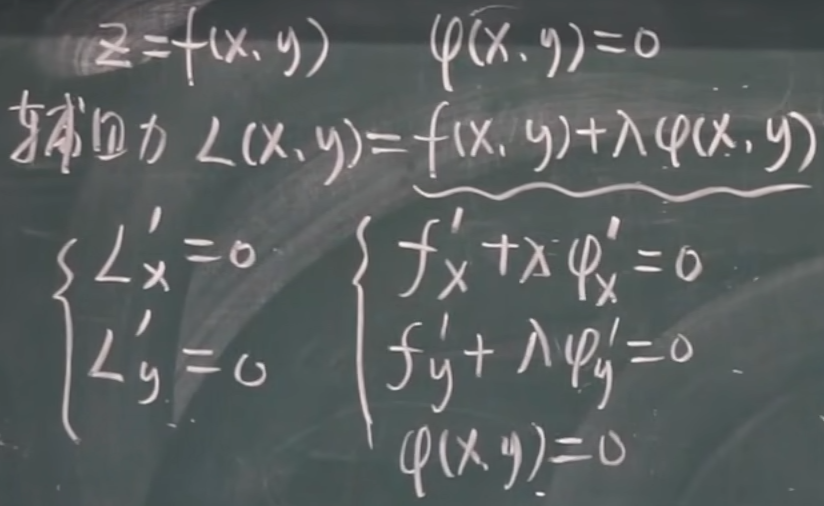 z=f(x,y) φ(x,y)=0
辅助 L(x,y)=f(x,y)+λφ(x,y)
L'x=0 f'x+λφ'x=0
L'y=0 f'y+λφ'y=0
φ(x,y)=0